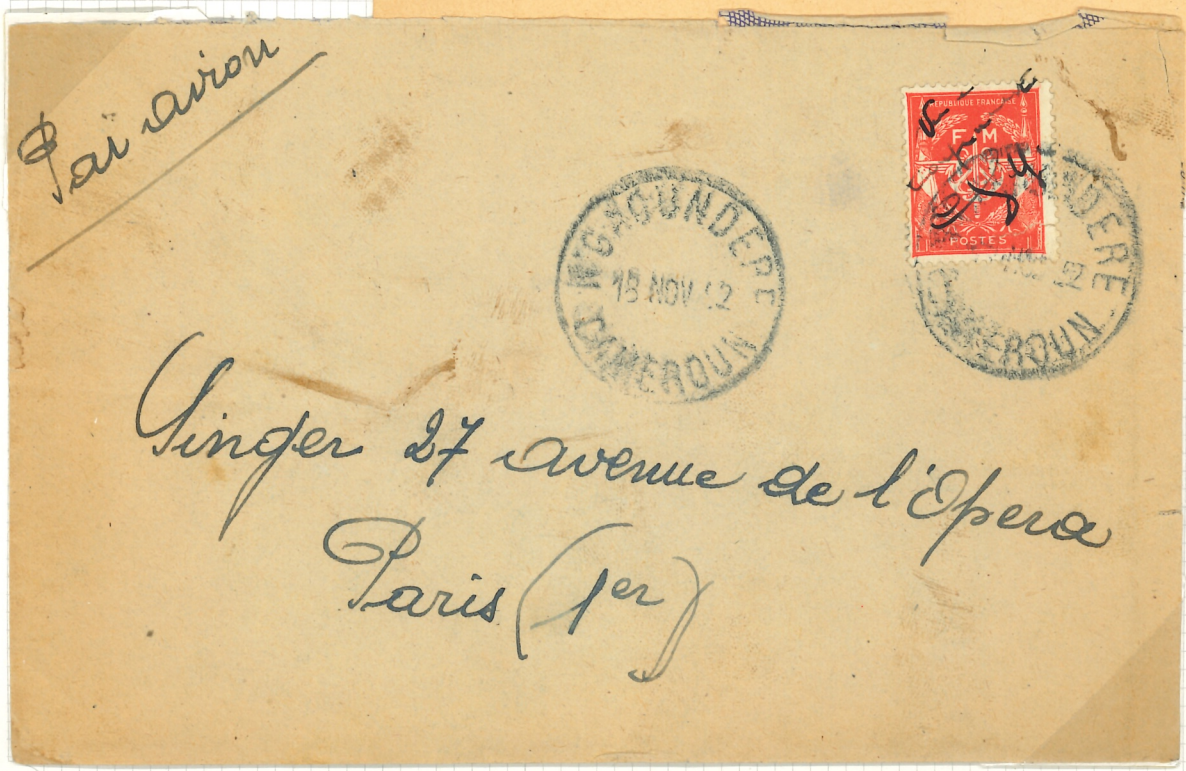 Par avion
REPUBLIQUE FRANÇAISE
F M
POSTES
N'GAOUNDERE
18 NOV 52
CAMEROUN
NDERE
CAMEROUN
Singer 27 avenue de l'Opera
Paris (1er)